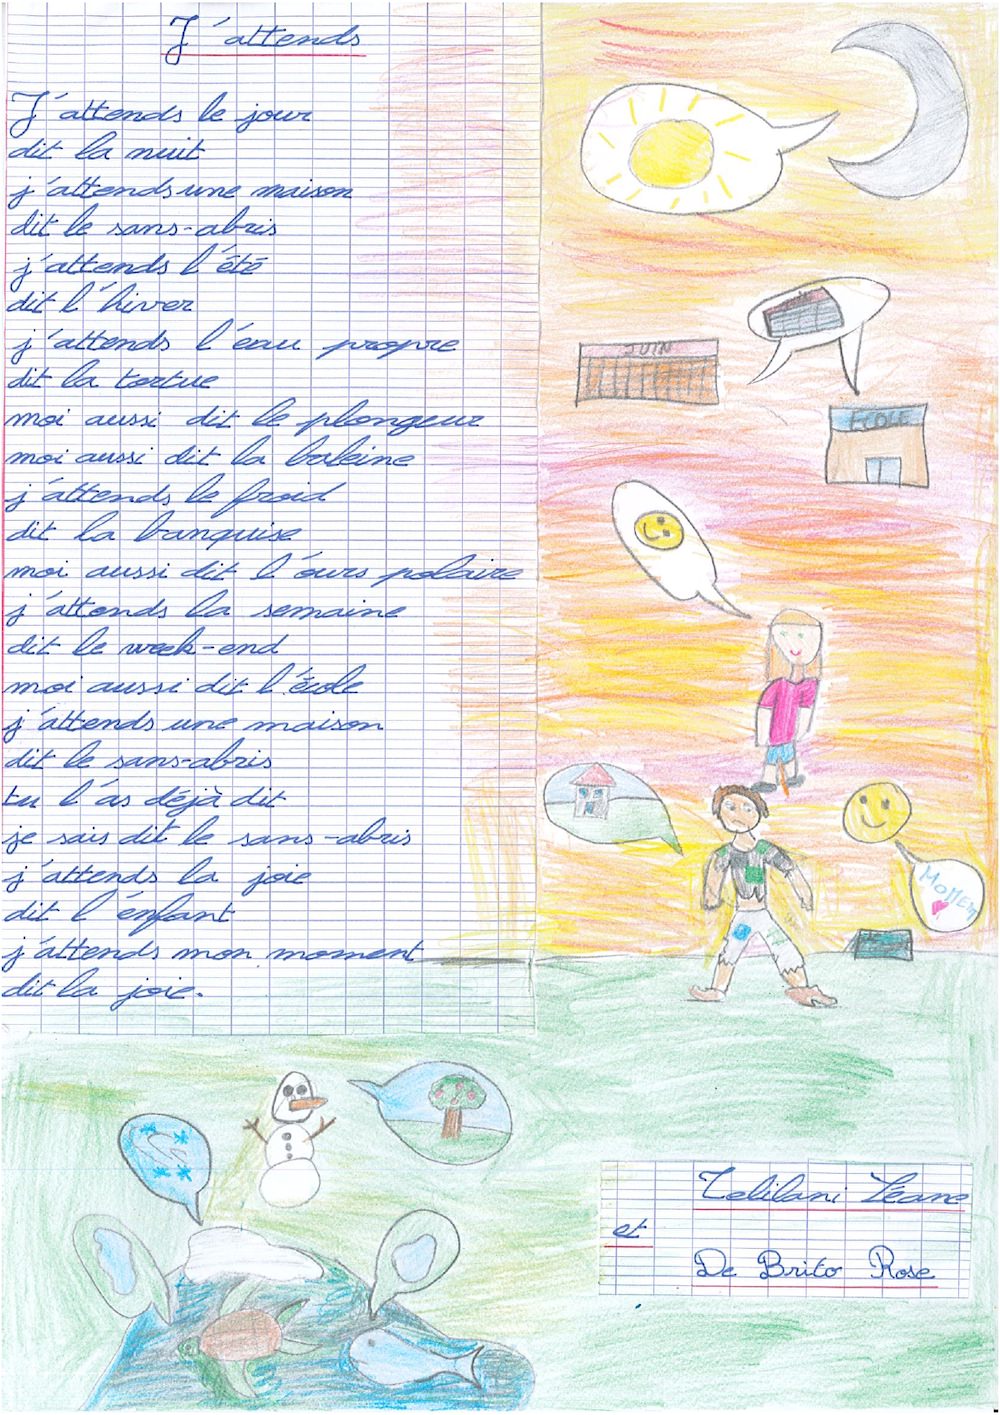 J'attends
J'attends le jour
dit la nuit
j'attends une maison
dit le sans-abris
j'attends l'été
dit l'hiver
j'attends l'eau propre
dit la tortue
moi aussi dit le plongeur
moi aussi dit la baleine
j'attends le froid
dit la banquise
moi aussi dit l'ours polaire
j'attends la semaine
dit le week-end
moi aussi dit l'école
j'attends une maison
dit le sans-abris
tu l'as déjà dit
je sais dit le sans-abris
j'attends la joie
dit l'énfant
j'attends mon moment
dit la joie.
JUIN
ECOLE
et
De Brito Rose